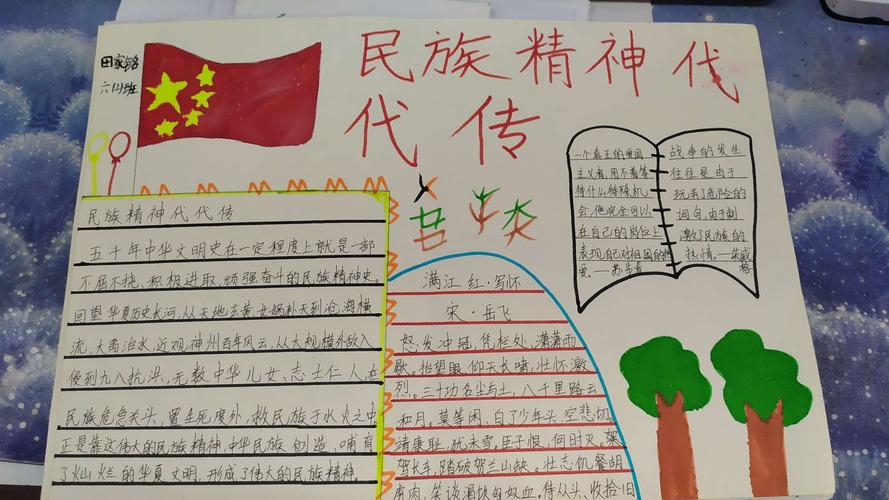 民族精神代
代传
田家铭
六(2)班
民族精神代代传
五千年中华文明史在一定程度上就是一部
不屈不挠、积极进取、顽强奋斗的民族精神史。
回望华夏历史长河,从天地玄黄、女娲补天到沧海横
流、大禹治水,近观神州百年风云,从大规模外敌入
侵到九八抗洪,无数中华儿女、志士仁人在
民族危急关头,置生死度外,救民族于水火之中
正是靠这伟大的民族精神,中华民族创造、哺育
了灿烂的华夏文明,形成了伟大的民族精神。
满江红·写怀
宋·岳飞
怒发冲冠,凭栏处、潇潇雨
歇。抬望眼,仰天长啸,壮怀激
烈。三十功名尘与土,八千里路云
和月。莫等闲、白了少年头,空悲切。
靖康耻,犹未雪。臣子恨,何时灭。驾
驾长车,踏破贺兰山缺。壮志饥餐胡
虏肉,笑谈渴饮匈奴血。待从头、收拾旧
一个真正的爱国
主义者,用不着等
待什么特殊机
会,他完全可以
在自己的岗位上
表现自己对祖国的热
爱。——苏步青
战争的发生
往往是由于
玩弄了危险的
词句,由于刺
激了民族的
热情。——英